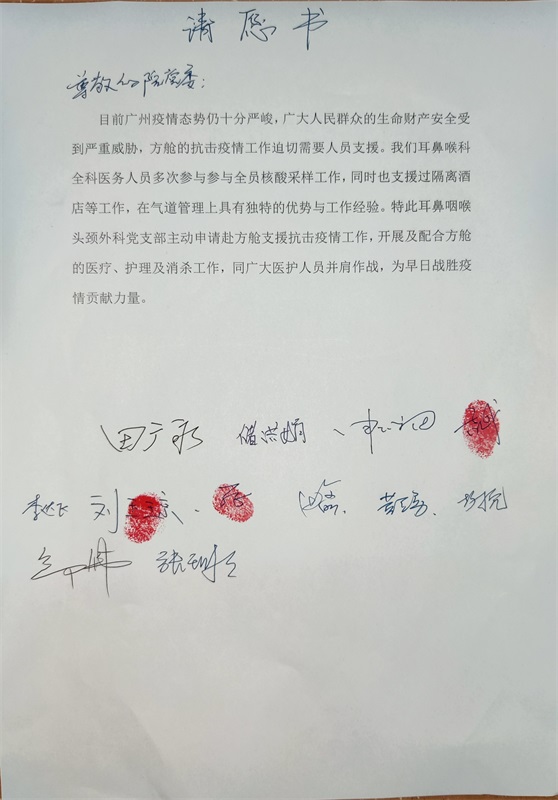 请愿书
尊敬的院党委：
目前广州疫情态势仍十分严峻，广大人民群众的生命财产安全受
到严重威胁，方舱的抗击疫情工作迫切需要人员支援。我们耳鼻喉科
全科医务人员多次参与参与全员核酸采样工作，同时也支援过隔离酒
店等工作，在气道管理上具有独特的优势与工作经验。特此耳鼻咽喉
头颈外科党支部主动申请赴方舱支援抗击疫情工作，开展及配合方舱
的医疗、护理及消杀工作，同广大医护人员并肩作战，为早日战胜疫
情贡献力量。
田广永 储洪娟、
刘